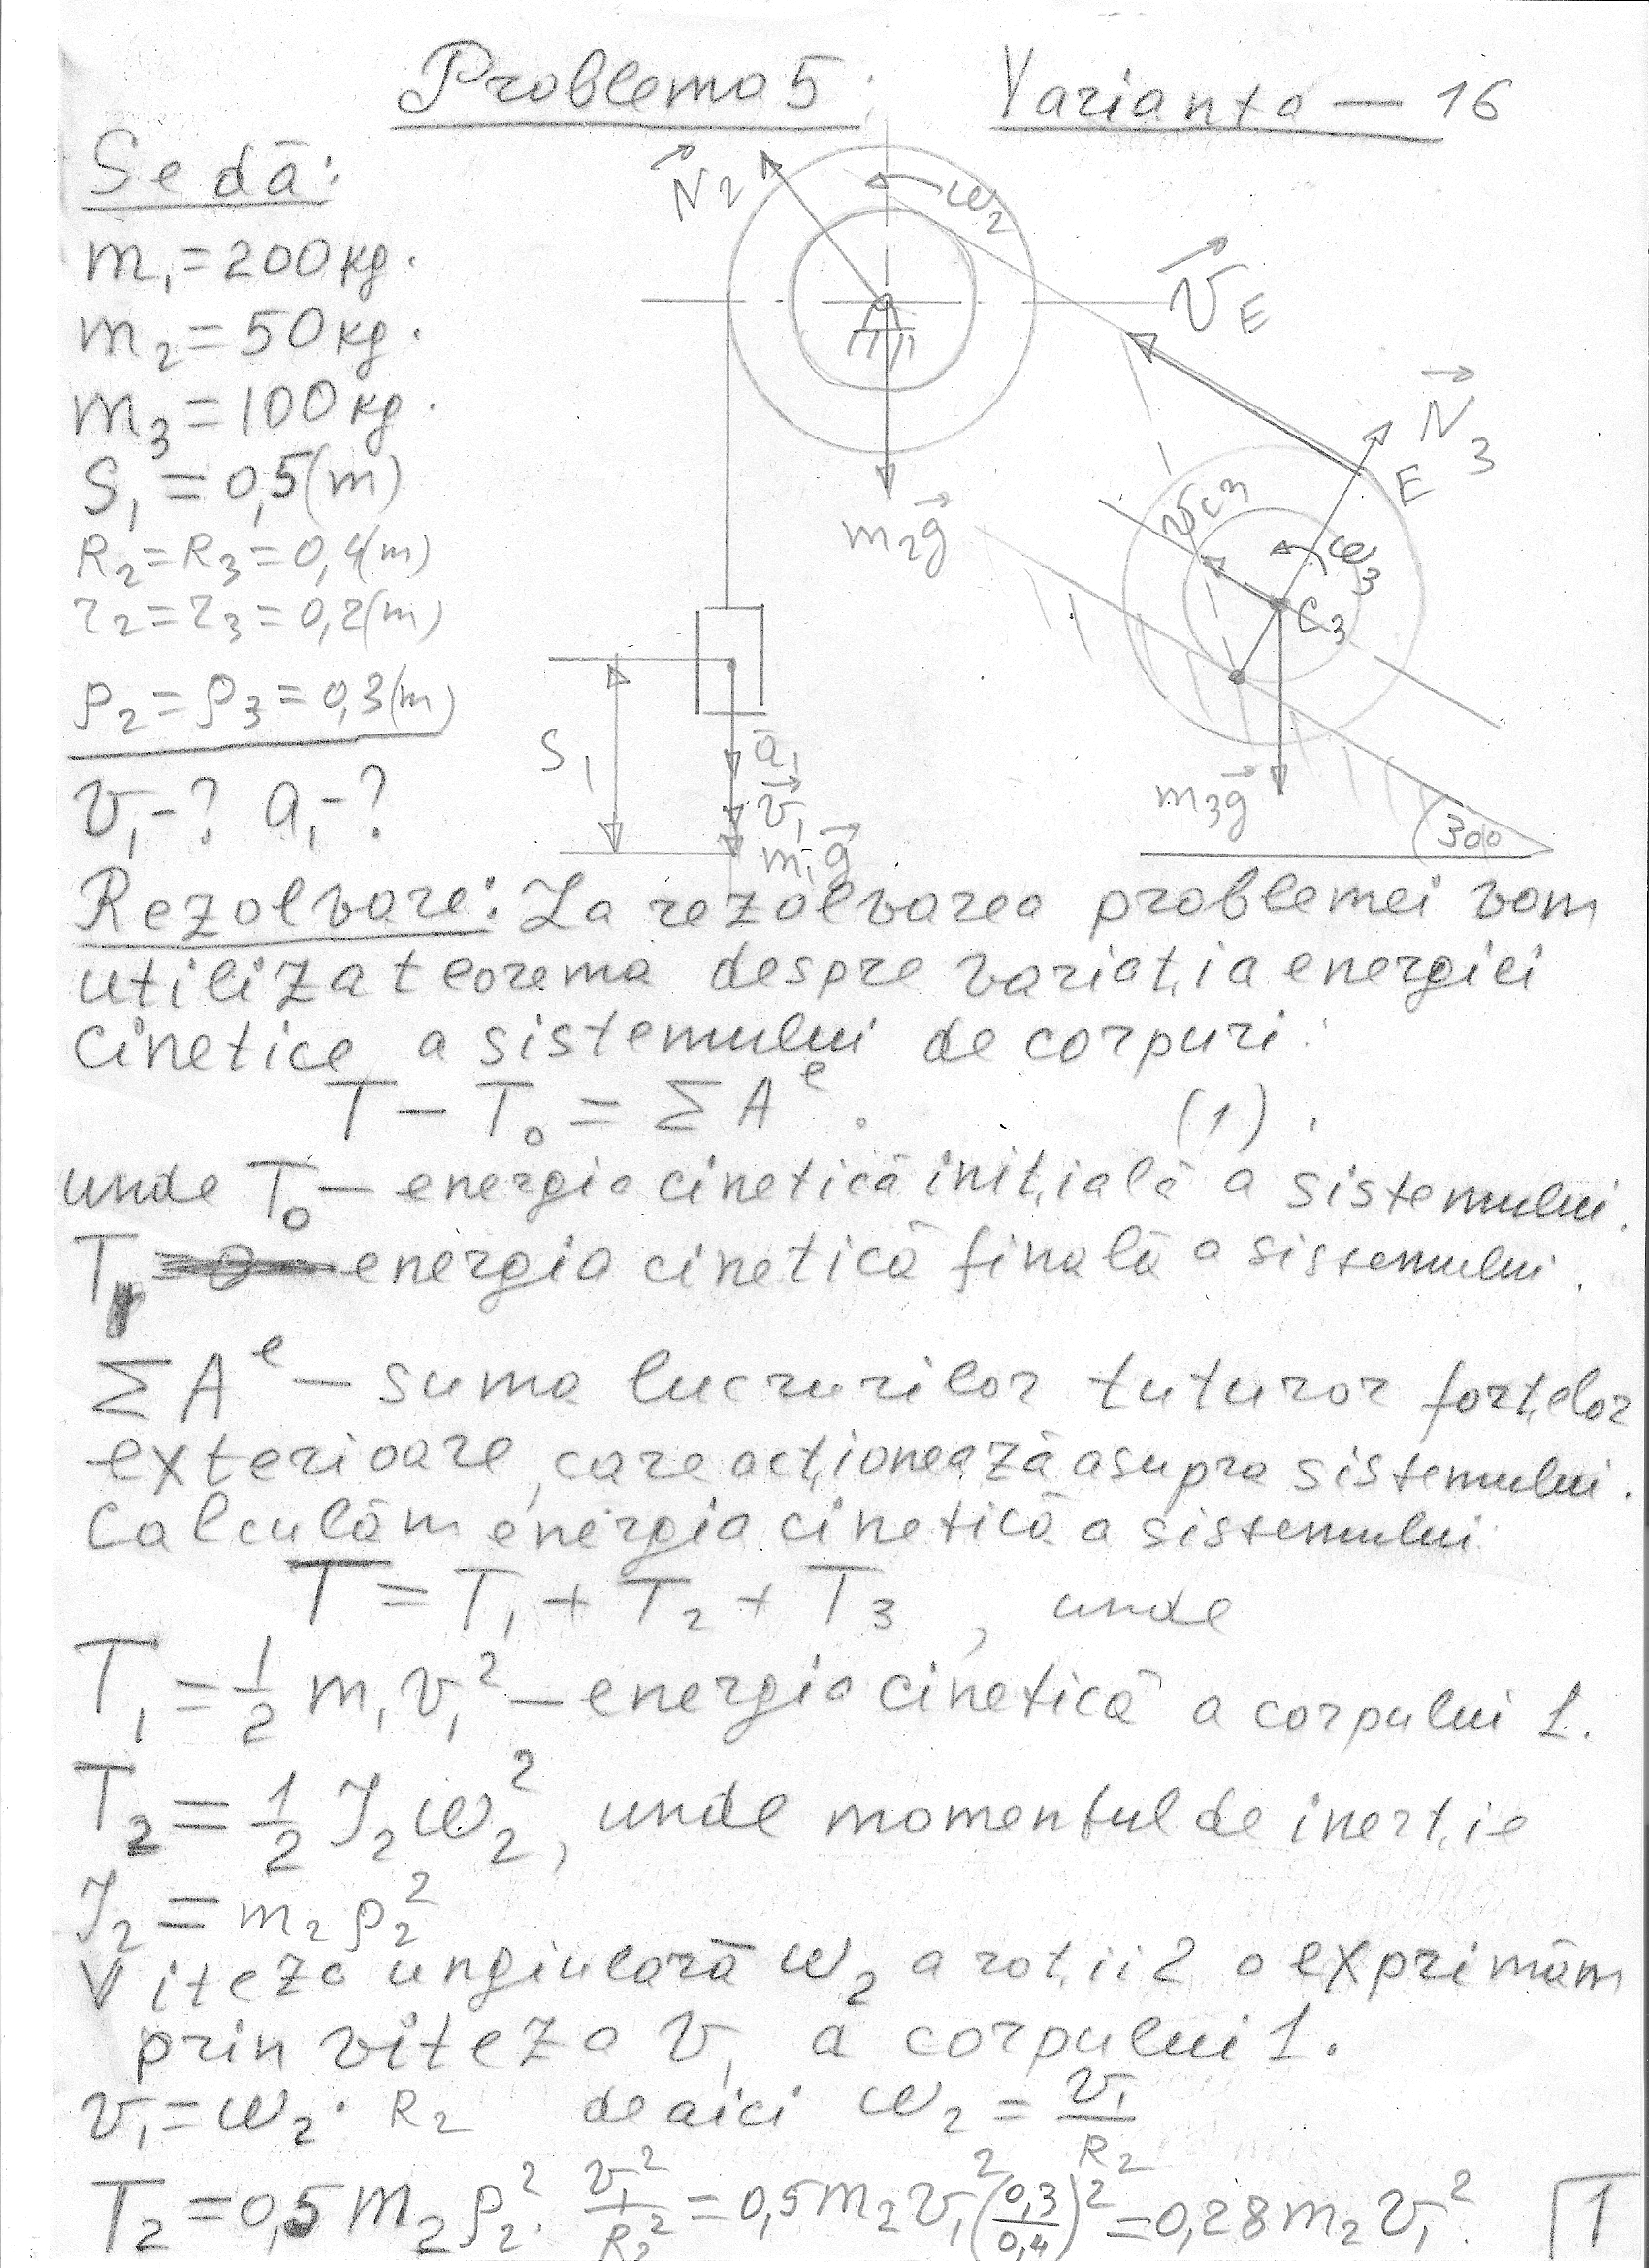 Problema 5. Varianta – 16
Se dă:
m₁ = 200 kg.
m₂ = 50 kg.
m₃ = 100 kg.
S₁ = 0,5 (m)
R₂ = R₃ = 0,4 (m)
r₂ = r₃ = 0,2 (m)
ρ₂ = ρ₃ = 0,3 (m)
v₁ - ? a₁ - ?
N₂
ω₂
v_E
N₃
E
m₂g
v_C₃
ω₃
C₃
S₁
a₁
v₁
m₁g
m₃g
30°
Rezolvare: La rezolvarea problemei vom
utiliza teorema despre variația energiei
cinetice a sistemului de corpuri:
T – T₀ = ΣAᵉ. (1).
unde T₀ – energia cinetică inițială a sistemului.
T – energia cinetică finală a sistemului.
ΣAᵉ – suma lucrurilor tuturor forțelor
exterioare, care acționează asupra sistemului.
Calculăm energia cinetică a sistemului
T = T₁ + T₂ + T₃, unde
T₁ = 1/2 m₁v₁² – energia cinetică a corpului 1.
T₂ = 1/2 J₂ω₂², unde momentul de inerție
J₂ = m₂ρ₂²
Viteza ungiulară ω₂ a roții 2 o exprimăm
prin viteza v₁ a corpului 1.
v₁ = ω₂ · R₂ de aici ω₂ = v₁/R₂
T₂ = 0,5 m₂ρ₂² · v₁²/R₂² = 0,5 m₂v₁² (0,3/0,4)² = 0,28 m₂v₁².
1